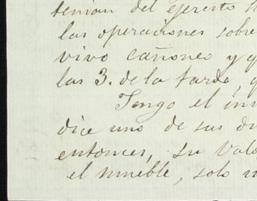 tenian del ejercito
las operaciones sobre
vivo cañones y q
las 3. de la tarde, q
Tengo el in
dice uno de sus d
entonces, su vale
el mueble, solo